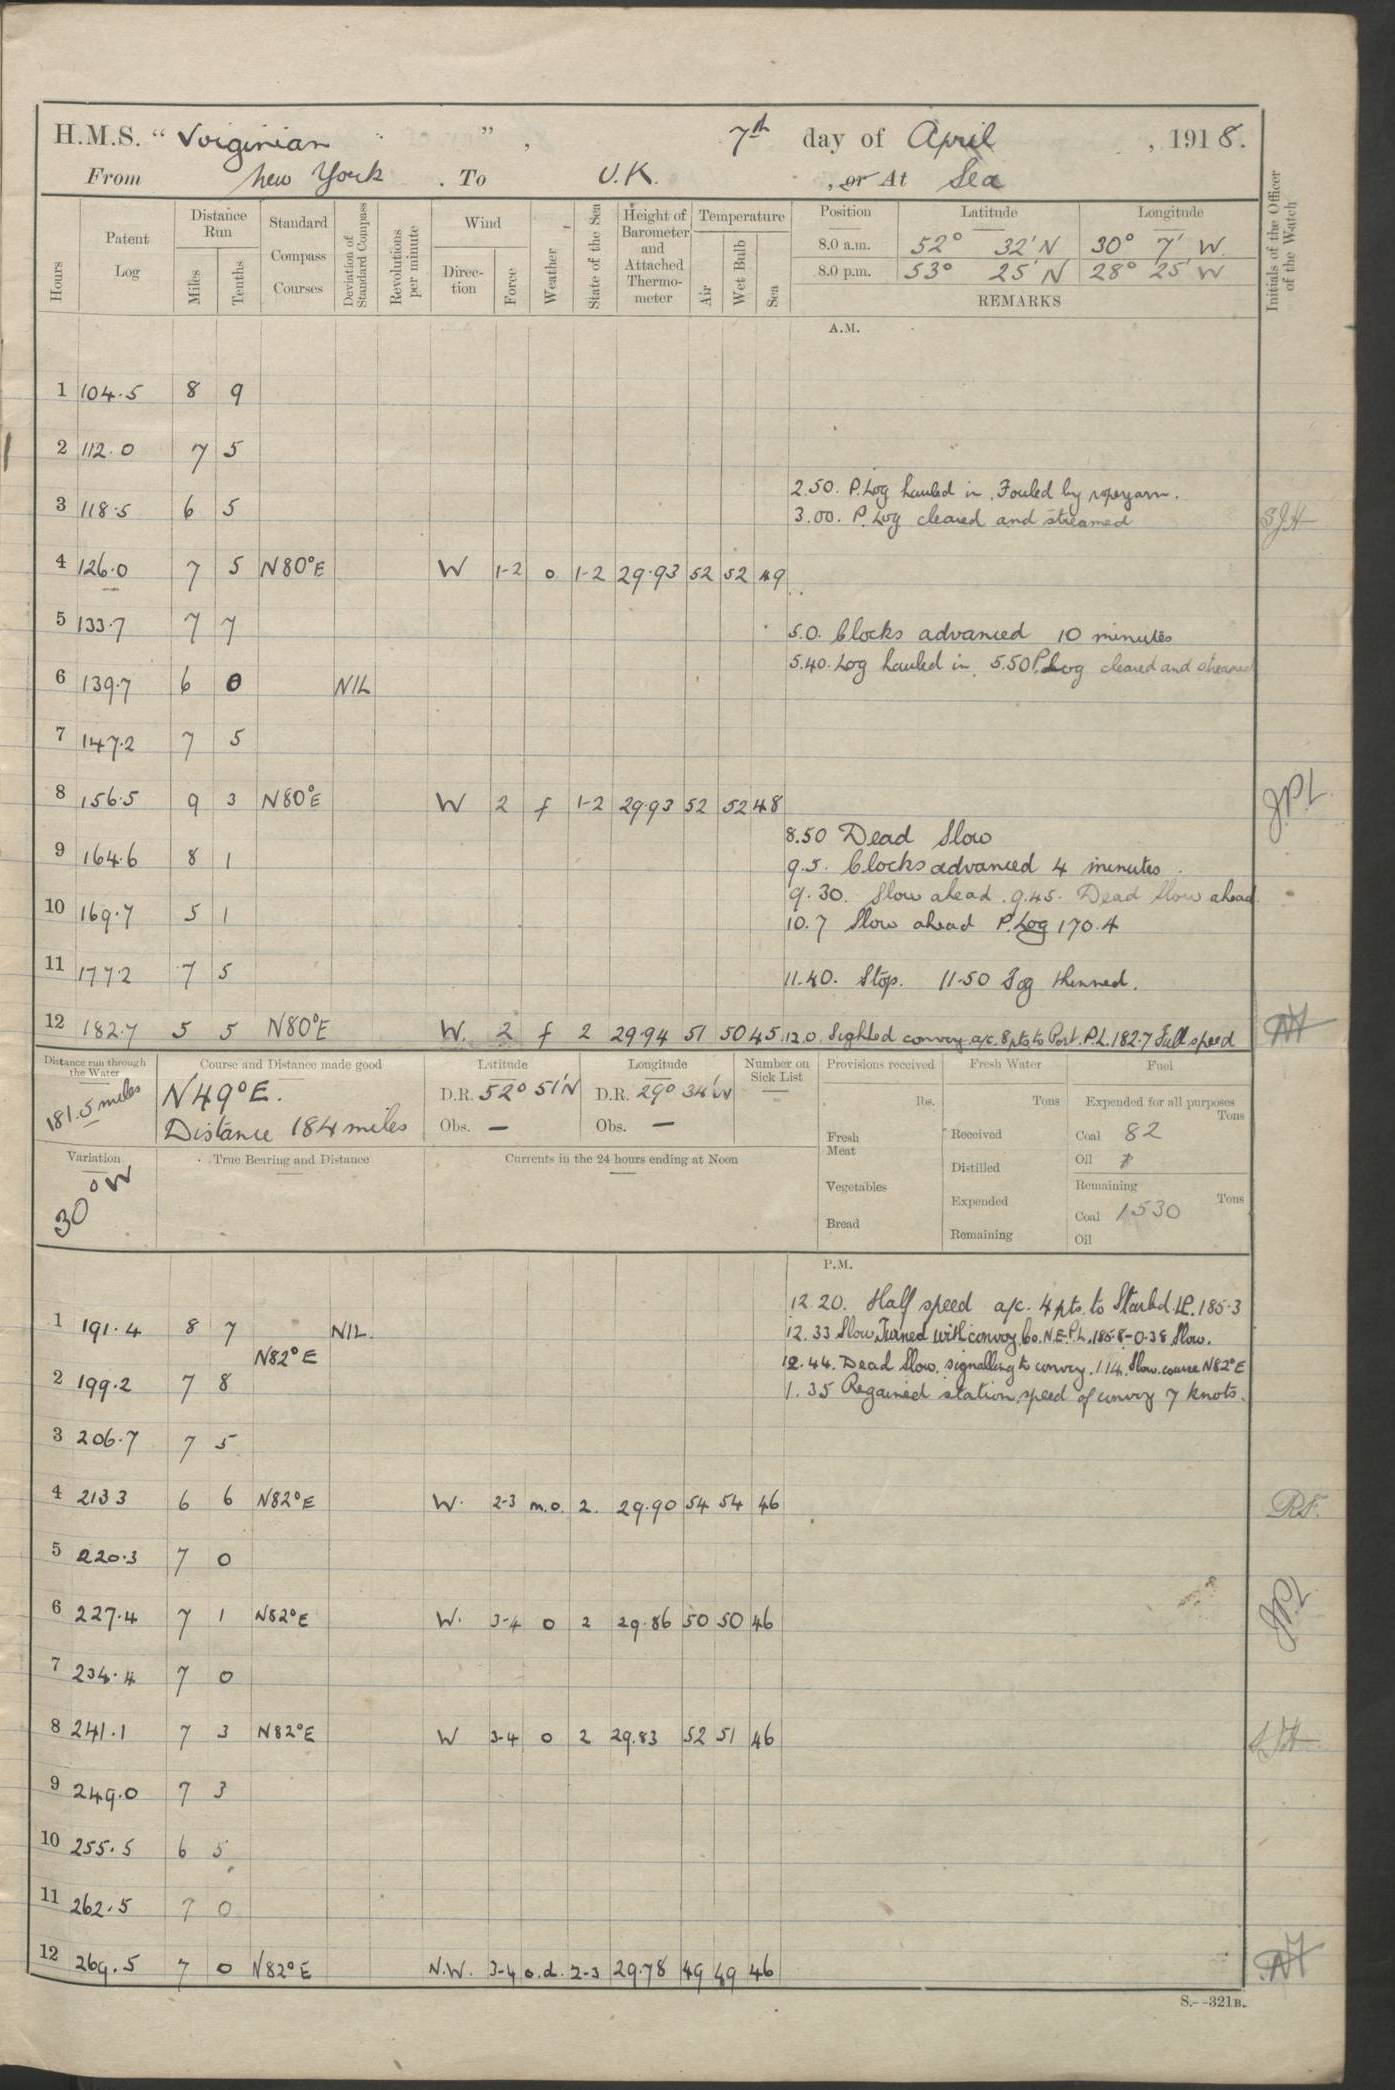 H.M.S. " Virginian ", 7th day of April, 1918.
From New York. To U.K., or At Sea
Hours
Patent Log
Distance Run
Miles
Tenths
Standard Compass Courses
Deviation of Standard Compass
Revolutions per minute
Wind
Direction
Force
Weather
State of the Sea
Height of Barometer and Attached Thermometer
Temperature
Air
Wet Bulb
Sea
Position Latitude Longitude
8.0 a.m. 52° 32' N 30° 7' W.
8.0 p.m. 53° 25' N 28° 25' W
REMARKS
Initials of the Officer of the Watch
A.M.
1 104.5 8 9
2 112.0 7 5
2.50. P. Log hauled in. Fouled by ropeyarn.
3 118.5 6 5 3.00. P. Log cleared and streamed SJH
4 126.0 7 5 N80°E W 1-2 o 1-2 29.93 52 52 49
5 133.7 7 7 5.0. Clocks advanced 10 minutes
5.40. Log hauled in. 5.50 P. Log cleared and streamed
6 139.7 6 0 NIL
7 147.2 7 5
8 156.5 9 3 N80°E W 2 f 1-2 29.93 52 52 48 J.P.L.
8.50 Dead Slow
9 164.6 8 1 9.5. Clocks advanced 4 minutes.
9.30. Slow ahead. 9.45. Dead Slow ahead.
10 169.7 5 1 10.7 Slow ahead P. Log 170.4
11 177.2 7 5 11.40. Stop. 11-50 Fog thinned.
12 182.7 5 5 N80°E W. 2 f 2 29.94 51 50 45 12.0. Sighted convoy a/c. 8 pts to Port. P.L. 182.7 Full speed
Distance run through the Water
181.5 miles
Course and Distance made good
N49°E.
Distance 184 miles
Latitude
D.R. 52° 51'N
Obs. —
Longitude
D.R. 29° 34'W
Obs. —
Number on Sick List
—
Provisions received
lbs.
Fresh Meat
Vegetables
Bread
Fresh Water
Tons
Received
Distilled
Expended
Remaining
Fuel
Expended for all purposes
Tons
Coal 82
Oil
Remaining
Tons
Coal 1530
Oil
Variation
30°W
True Bearing and Distance
Currents in the 24 hours ending at Noon
P.M.
12.20. Half speed a/c. 4 pts. to Starbd. 185.3
1 191.4 8 7 NIL. 12.33 Slow. Turned with convoy Co. N.E. P.L. 185.8-0.38 Slow.
N82°E 12.44. Dead Slow. signalling to convoy. 1.14. Slow. course N82°E
2 199.2 7 8 1.35 Regained station, speed of convoy 7 knots.
3 206.7 7 5
4 213 3 6 6 N82°E W. 2-3 m.o. 2. 29.90 54 54 46 R.F.
5 220.3 7 0
6 227.4 7 1 N82°E W. 3-4 o 2 29.86 50 50 46 JPL
7 234.4 7 0
8 241.1 7 3 N82°E W 3-4 o 2 29.83 52 51 46 SJH
9 249.0 7 3
10 255.5 6 5
11 262.5 7 0
12 269.5 7 0 N82°E N.W. 3-4 o.d. 2-3 29.78 49 49 46
S.--321B.